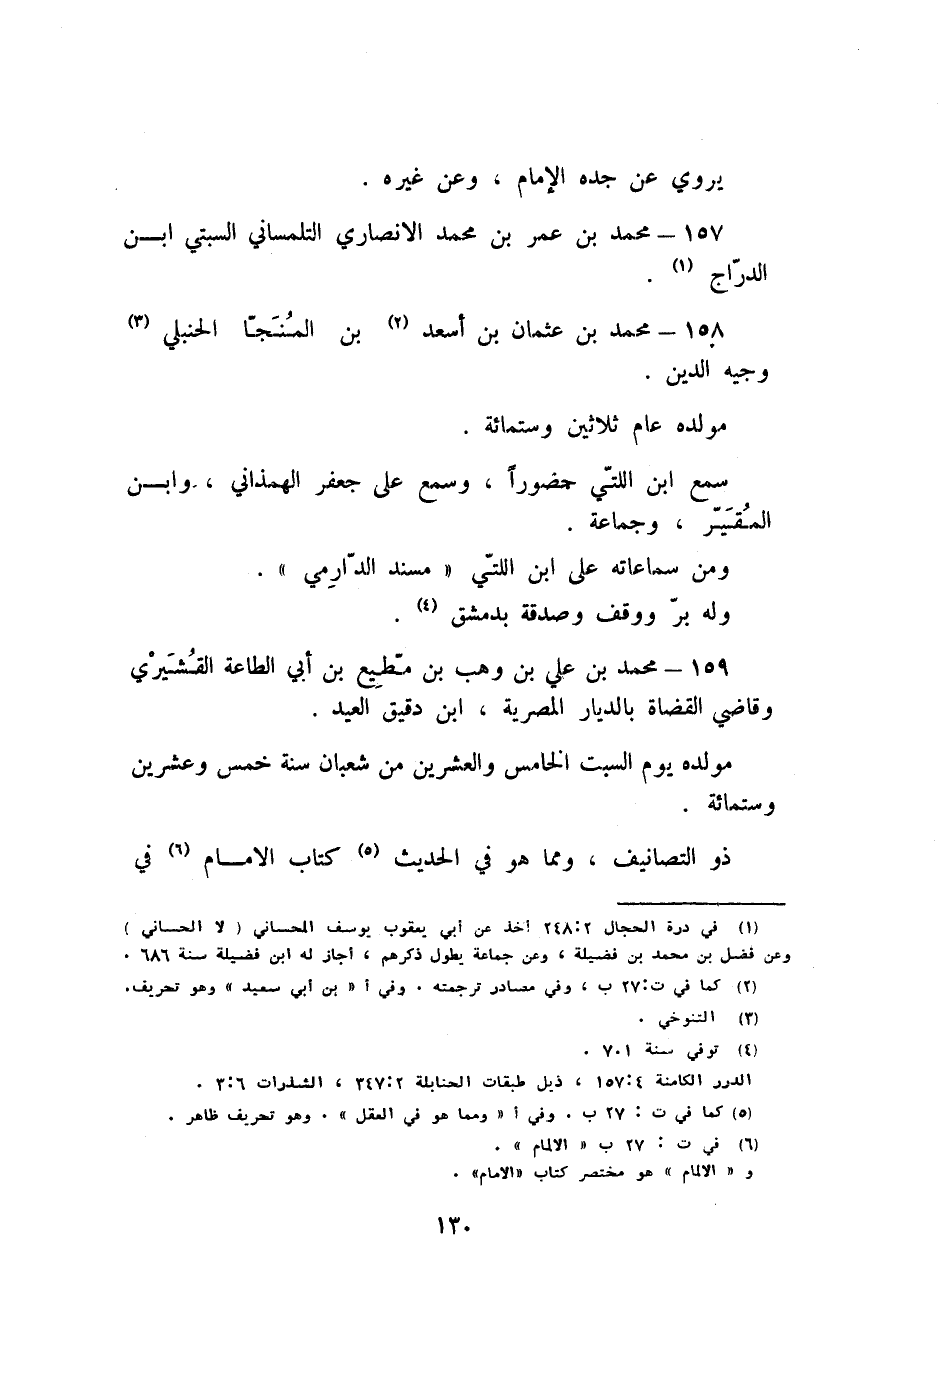 يروي عن جده الإمام ، وعن غيره .
١٥٧ – محمد بن عمر بن محمد الانصاري التلمساني السبتي ابــن
الدرّاج (١) .
١٥٨ – محمد بن عثمان بن أسعد (٢) بن المُنَجّا الحنبلي (٣)
وجيه الدين .
مولده عام ثلاثين وستمائة .
سمع ابن اللتّي حضوراً ، وسمع على جعفر الهمذاني ، وابــن
المُقَيّر ، وجماعة .
ومن سماعاته على ابن اللتّي « مسند الدّارِمي » .
وله برّ ووقف وصدقة بدمشق (٤) .
١٥٩ – محمد بن علي بن وهب بن مطيع بن أبي الطاعة القُشَيْري
وقاضي القضاة بالديار المصرية ، ابن دقيق العيد .
مولده يوم السبت الخامس والعشرين من شعبان سنة خمس وعشرين
وستمائة .
ذو التصانيف ، ومما هو في الحديث (٥) كتاب الامــام (٦) في
(١) في درة الحجال ٢٤٨:٢ أخذ عن أبي يعقوب يوسف المحساني ( لا الحساني )
وعن فضل بن محمد بن فضيلة ، وعن جماعة يطول ذكرهم ، أجاز له ابن فضيلة سنة ٦٨٦ .
(٢) كما في ت:٢٧ ب ، وفي مصادر ترجمته . وفي أ « بن أبي سعيد » وهو تحريف.
(٣) التنوخي .
(٤) توفي سنة ٧٠١ .
الدرر الكامنة ١٥٧:٤ ، ذيل طبقات الحنابلة ٣٤٧:٢ ، الشذرات ٣:٦ .
(٥) كما في ت : ٢٧ ب . وفي أ « ومما هو في العقل » . وهو تحريف ظاهر .
(٦) في ت : ٢٧ ب « الالمام » .
و « الالمام » هو مختصر كتاب «الامام» .
١٣٠